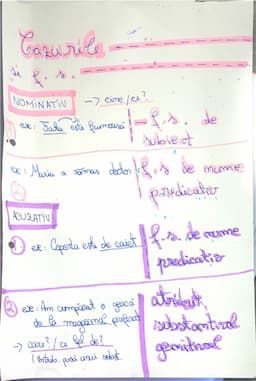 Cazurile
și f. s.
NOMINATIV -> cine/ce?
① ex: Sala este frumoasă
- f.s. de
subiect
② ex: Maria a rămas doctor
f.s de nume
predicativ
ACUZATIV
① ex: Coperta este de caiet
f.s. de nume
predicativ
② ex: Am cumpărat o geacă
de la magazinul preferat
-> care? / ce fel de?
atribut
substantival
genitival